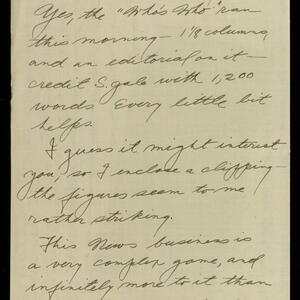 Yes, the "Who's Who" ran
this morning — 1 1/8 columns,
and an editorial on it —
credit S. gale with 1,200
words. Every little bit
helps.
I guess it might interest
you, so I enclose a clipping —
the figures seem to me
rather striking.
This News business is
a very complex game, and
infinitely more to it than